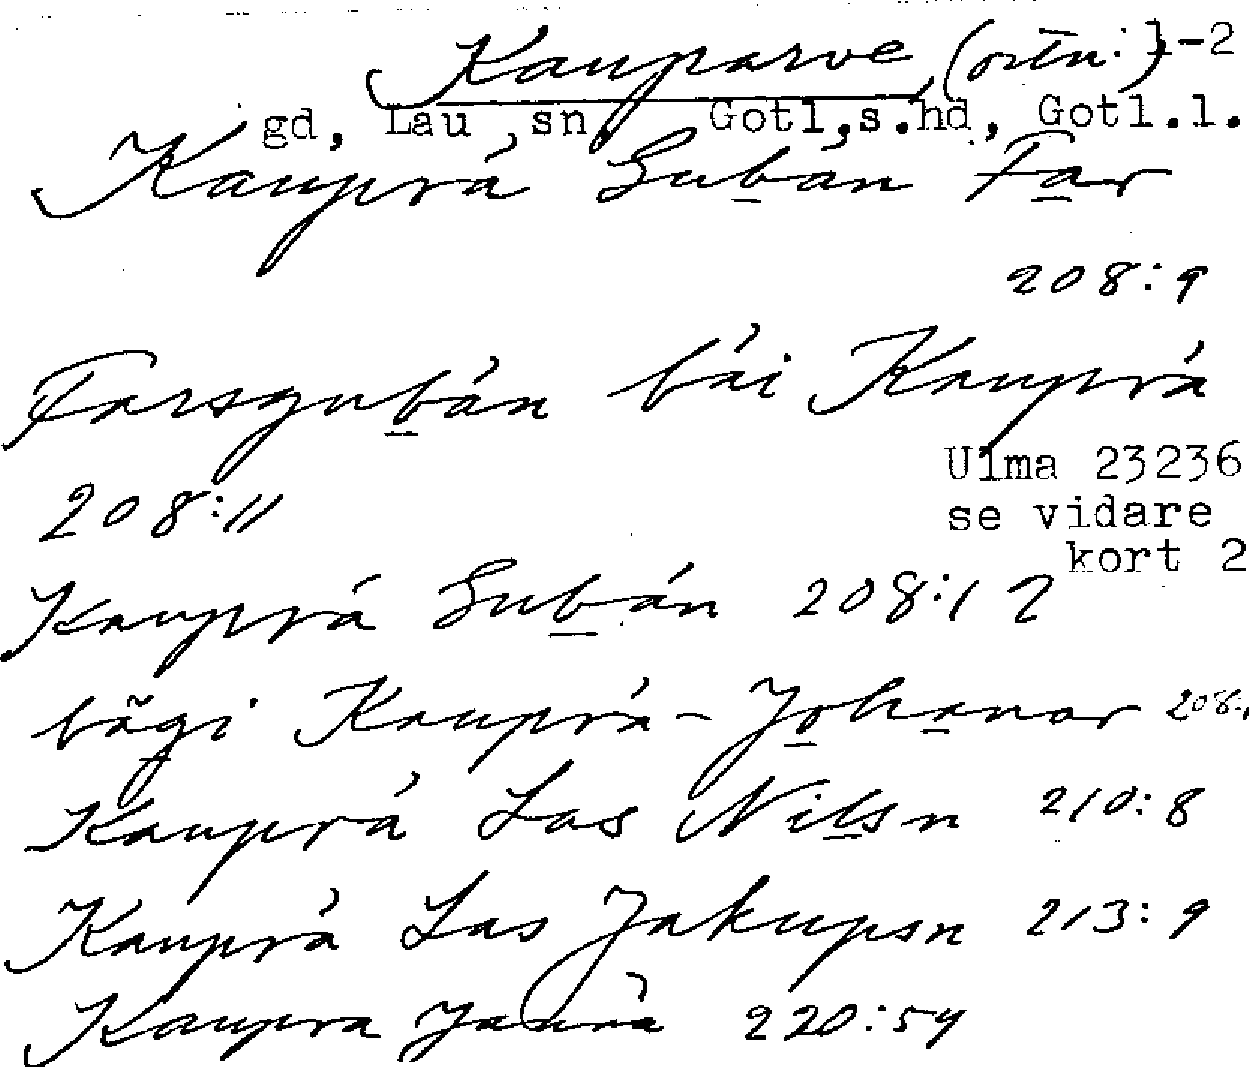 Kauparve (ortn.) 1-2
gd, Lau sn, Gotl.s.hd, Gotl.l.
Kauprá Gubán Far
208:9
Farsgubán bái Kauprá
208:11
Ulma 23236
se vidare
kort 2
Kauprá Gubán 208:12
bägi Kauprá-Johanar 208:
Kauprá Las Nilsn 210:8
Kauprá Las Jakupsn 213:9
Kaupra 220:54